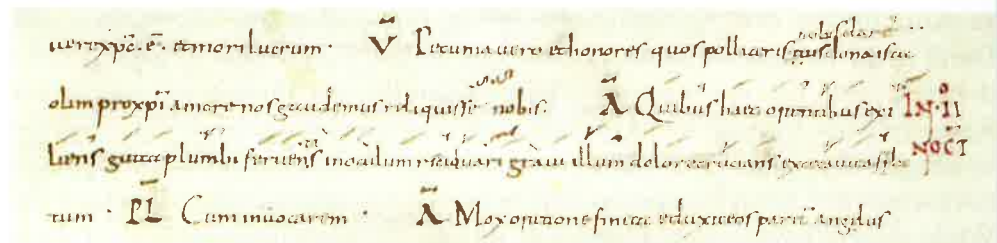 uere xp̄c · ē · et mori lucrum · V̄ Pecunia uero et honores quos polliceris tuis dona
olim pro xp̄i amore nos gaudemus reliquisse nobis. Ā Quibus haec orantibus exi IN · II
liens gutta plumbi feruens in oculum graui illum dolore crucians NOCT
PL̄ Cum inuocarem · Ā Mox oratione finita eduxit eos parit angelus